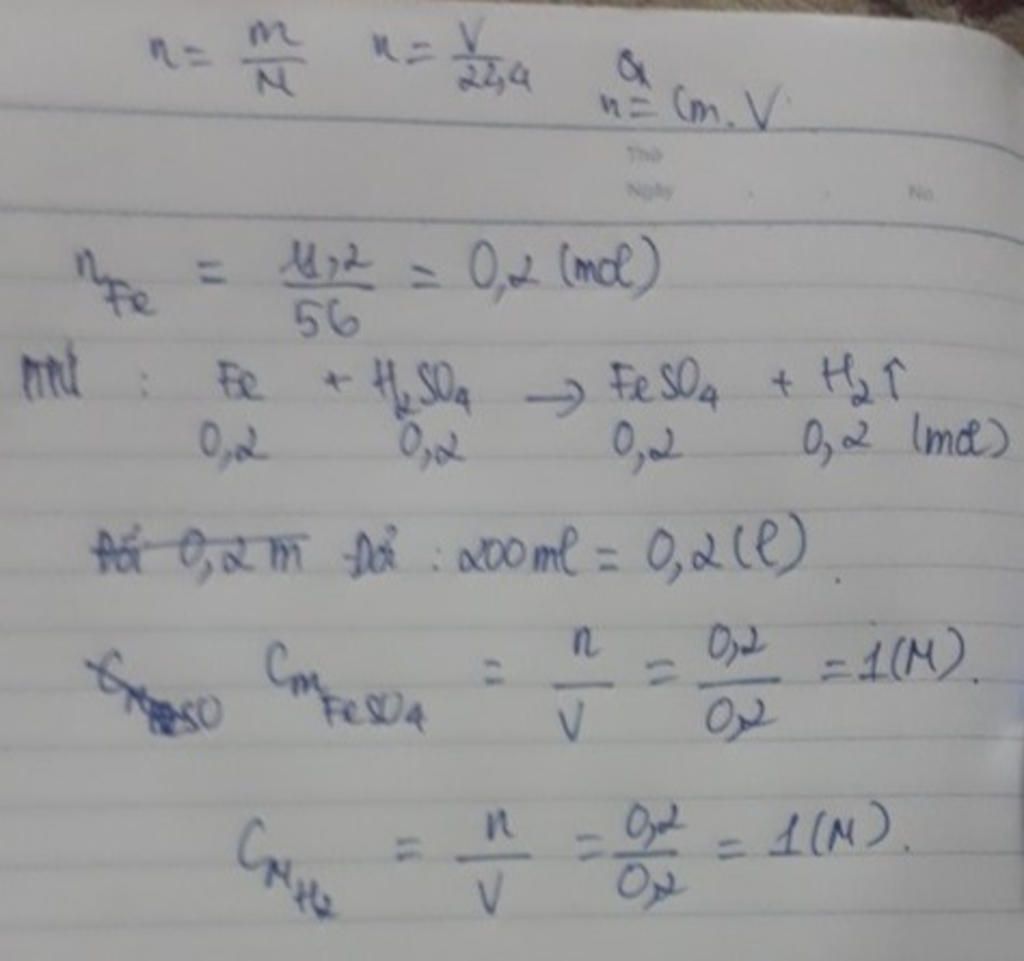 n = m/M n = V/22,4 n = Cm.V
Thứ
Ngày No.
nFe = 11,2/56 = 0,2 (mol)
: Fe + H₂SO₄ → FeSO₄ + H₂↑
0,2 0,2 0,2 0,2 (mol)
Đổi 0,2m Đổi : 200ml = 0,2(l).
Cm FeSO₄ = n/V = 0,2/0,2 = 1(M).
CM H₂ = n/V = 0,2/0,2 = 1(M).